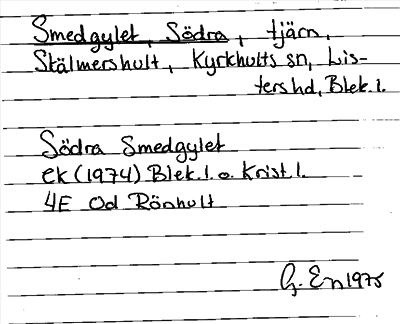 Smedgylet, Södra, tjärn,
Stålmershult, Kyrkhults sn, Lis-
ters hd, Blek. l.
Södra Smedgylet
ek (1974) Blek. l. o. Krist. l.
4E Od Rönhult
G. En 1975